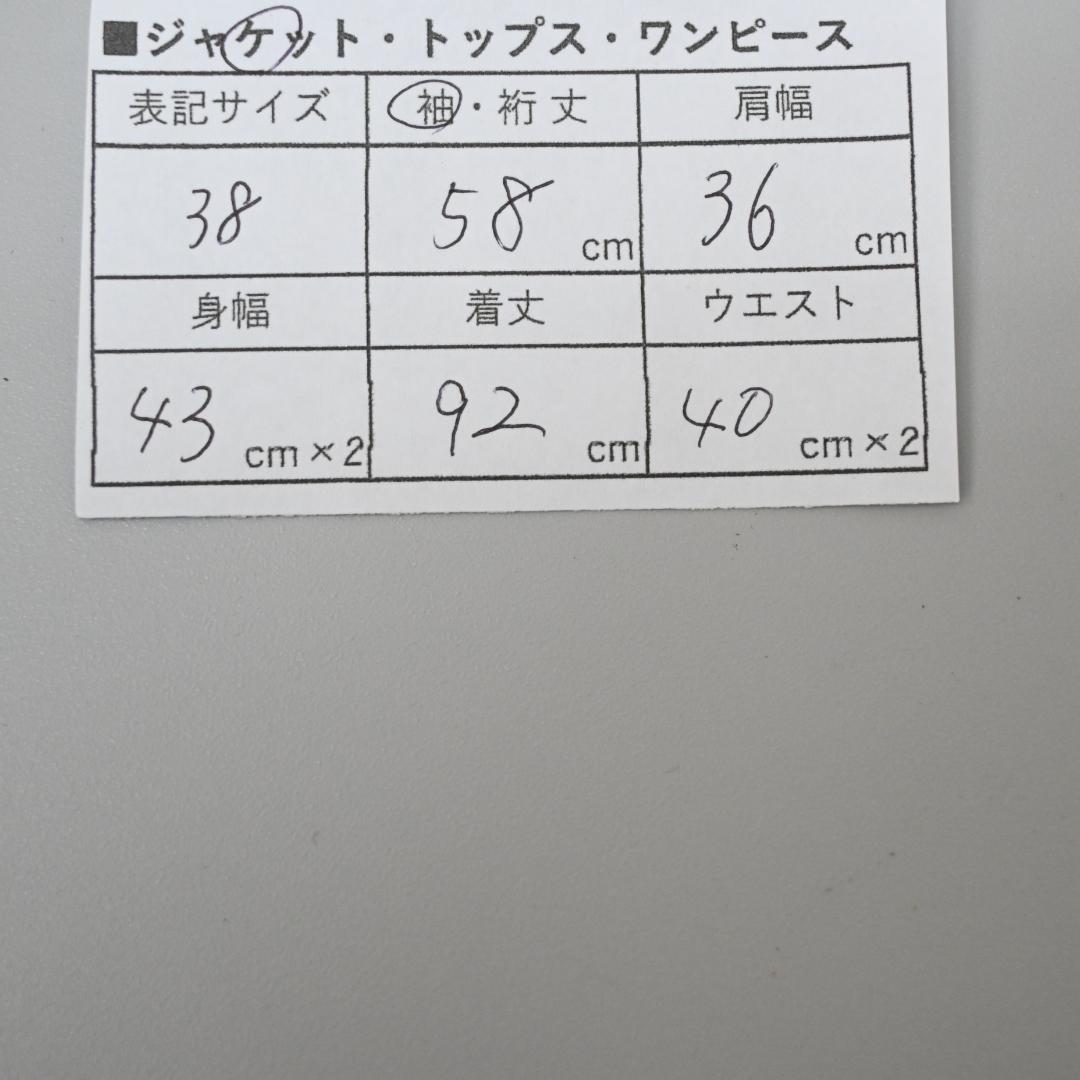 ■ジャケット・トップス・ワンピース
表記サイズ 袖・裄丈 肩幅
38 58 cm 36 cm
身幅 着丈 ウエスト
43 cm×2 92 cm 40 cm×2